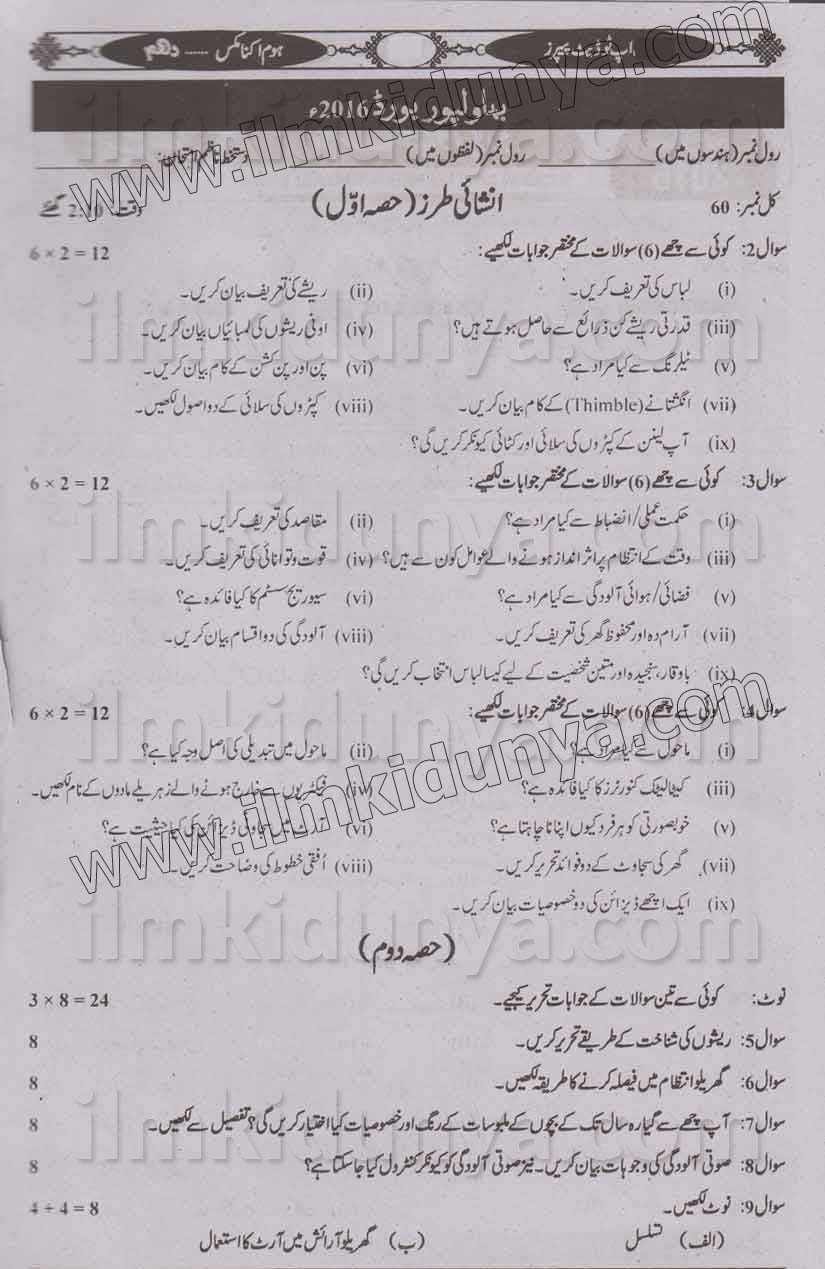 اپ ٹو ڈیٹ پیپرز ہوم اکنامکس ...... دھم
بہاولپور بورڈ 2016ء
رول نمبر (ہندسوں میں) رول نمبر (لفظوں میں) دستخط ناظم امتحان:
کل نمبر: 60 انشائی طرز (حصہ اوّل) وقت: 2:10 گھنٹے
سوال 2: کوئی سے چھے (6) سوالات کے مختصر جوابات لکھیے: 6 × 2 = 12
(i) لباس کی تعریف کریں۔ (ii) ریشے کی تعریف بیان کریں۔
(iii) قدرتی ریشے کن ذرائع سے حاصل ہوتے ہیں؟ (iv) اونی ریشوں کی لمبائیاں بیان کریں۔
(v) ٹیلرنگ سے کیا مراد ہے؟ (vi) پن اور پن کشن کے کام بیان کریں۔
(vii) انگشتانے (Thimble) کے کام بیان کریں۔ (viii) کپڑوں کی سلائی کے دو اصول لکھیں۔
(ix) آپ لینن کے کپڑوں کی سلائی اور کٹائی کیونکر کریں گی؟
سوال 3: کوئی سے چھے (6) سوالات کے مختصر جوابات لکھیے: 6 × 2 = 12
(i) حکمت عملی/انضباط سے کیا مراد ہے؟ (ii) مقاصد کی تعریف کریں۔
(iii) وقت کے انتظام پر اثر انداز ہونے والے عوامل کون سے ہیں؟ (iv) قوت و توانائی کی تعریف کریں۔
(v) فضائی/ہوائی آلودگی سے کیا مراد ہے؟ (vi) سیوریج سسٹم کا کیا فائدہ ہے؟
(vii) آرام دہ اور محفوظ گھر کی تعریف کریں۔ (viii) آلودگی کی دو اقسام بیان کریں۔
(ix) باوقار، سنجیدہ اور متین شخصیت کے لیے کیسا لباس انتخاب کریں گی؟
سوال 4: کوئی سے چھے (6) سوالات کے مختصر جوابات لکھیے: 6 × 2 = 12
(i) ماحول سے کیا مراد ہے؟ (ii) ماحول میں تبدیلی کی اصل وجہ کیا ہے؟
(iii) کیٹالیٹک کنورٹرز کا کیا فائدہ ہے؟ (iv) فیکٹریوں سے خارج ہونے والے زہریلے مادوں کے نام لکھیں۔
(v) خوبصورتی کو ہر فرد کیوں اپنانا چاہتا ہے؟ (vi) آرٹ میں سجاوٹی ڈیزائن کی کیا حیثیت ہے؟
(vii) گھر کی سجاوٹ کے دو فوائد تحریر کریں۔ (viii) اُفقی خطوط کی وضاحت کریں۔
(ix) ایک اچھے ڈیزائن کی دو خصوصیات بیان کریں۔
(حصہ دوم)
نوٹ: کوئی سے تین سوالات کے جوابات تحریر کیجیے۔ 3 × 8 = 24
سوال 5: ریشوں کی شناخت کے طریقے تحریر کریں۔ 8
سوال 6: گھریلو انتظام میں فیصلہ کرنے کا طریقہ لکھیں۔ 8
سوال 7: آپ چھے سے گیارہ سال تک کے بچوں کے ملبوسات کے رنگ اور خصوصیات کیا اختیار کریں گی؟ تفصیل سے لکھیں۔ 8
سوال 8: صوتی آلودگی کی وجوہات بیان کریں۔ نیز صوتی آلودگی کو کیونکر کنٹرول کیا جاسکتا ہے؟ 8
سوال 9: نوٹ لکھیں۔ 4 + 4 = 8
(الف) تسلسل (ب) گھریلو آرائش میں آرٹ کا استعمال
www.ilmkidunya.com
www.ilmkidunya.com
ilmkidunya.com
ilmkidunya.com
ilmkidunya.com
ilmkidunya.com
ilmkidunya.com
ilmkidunya.com
ilmkidunya.com